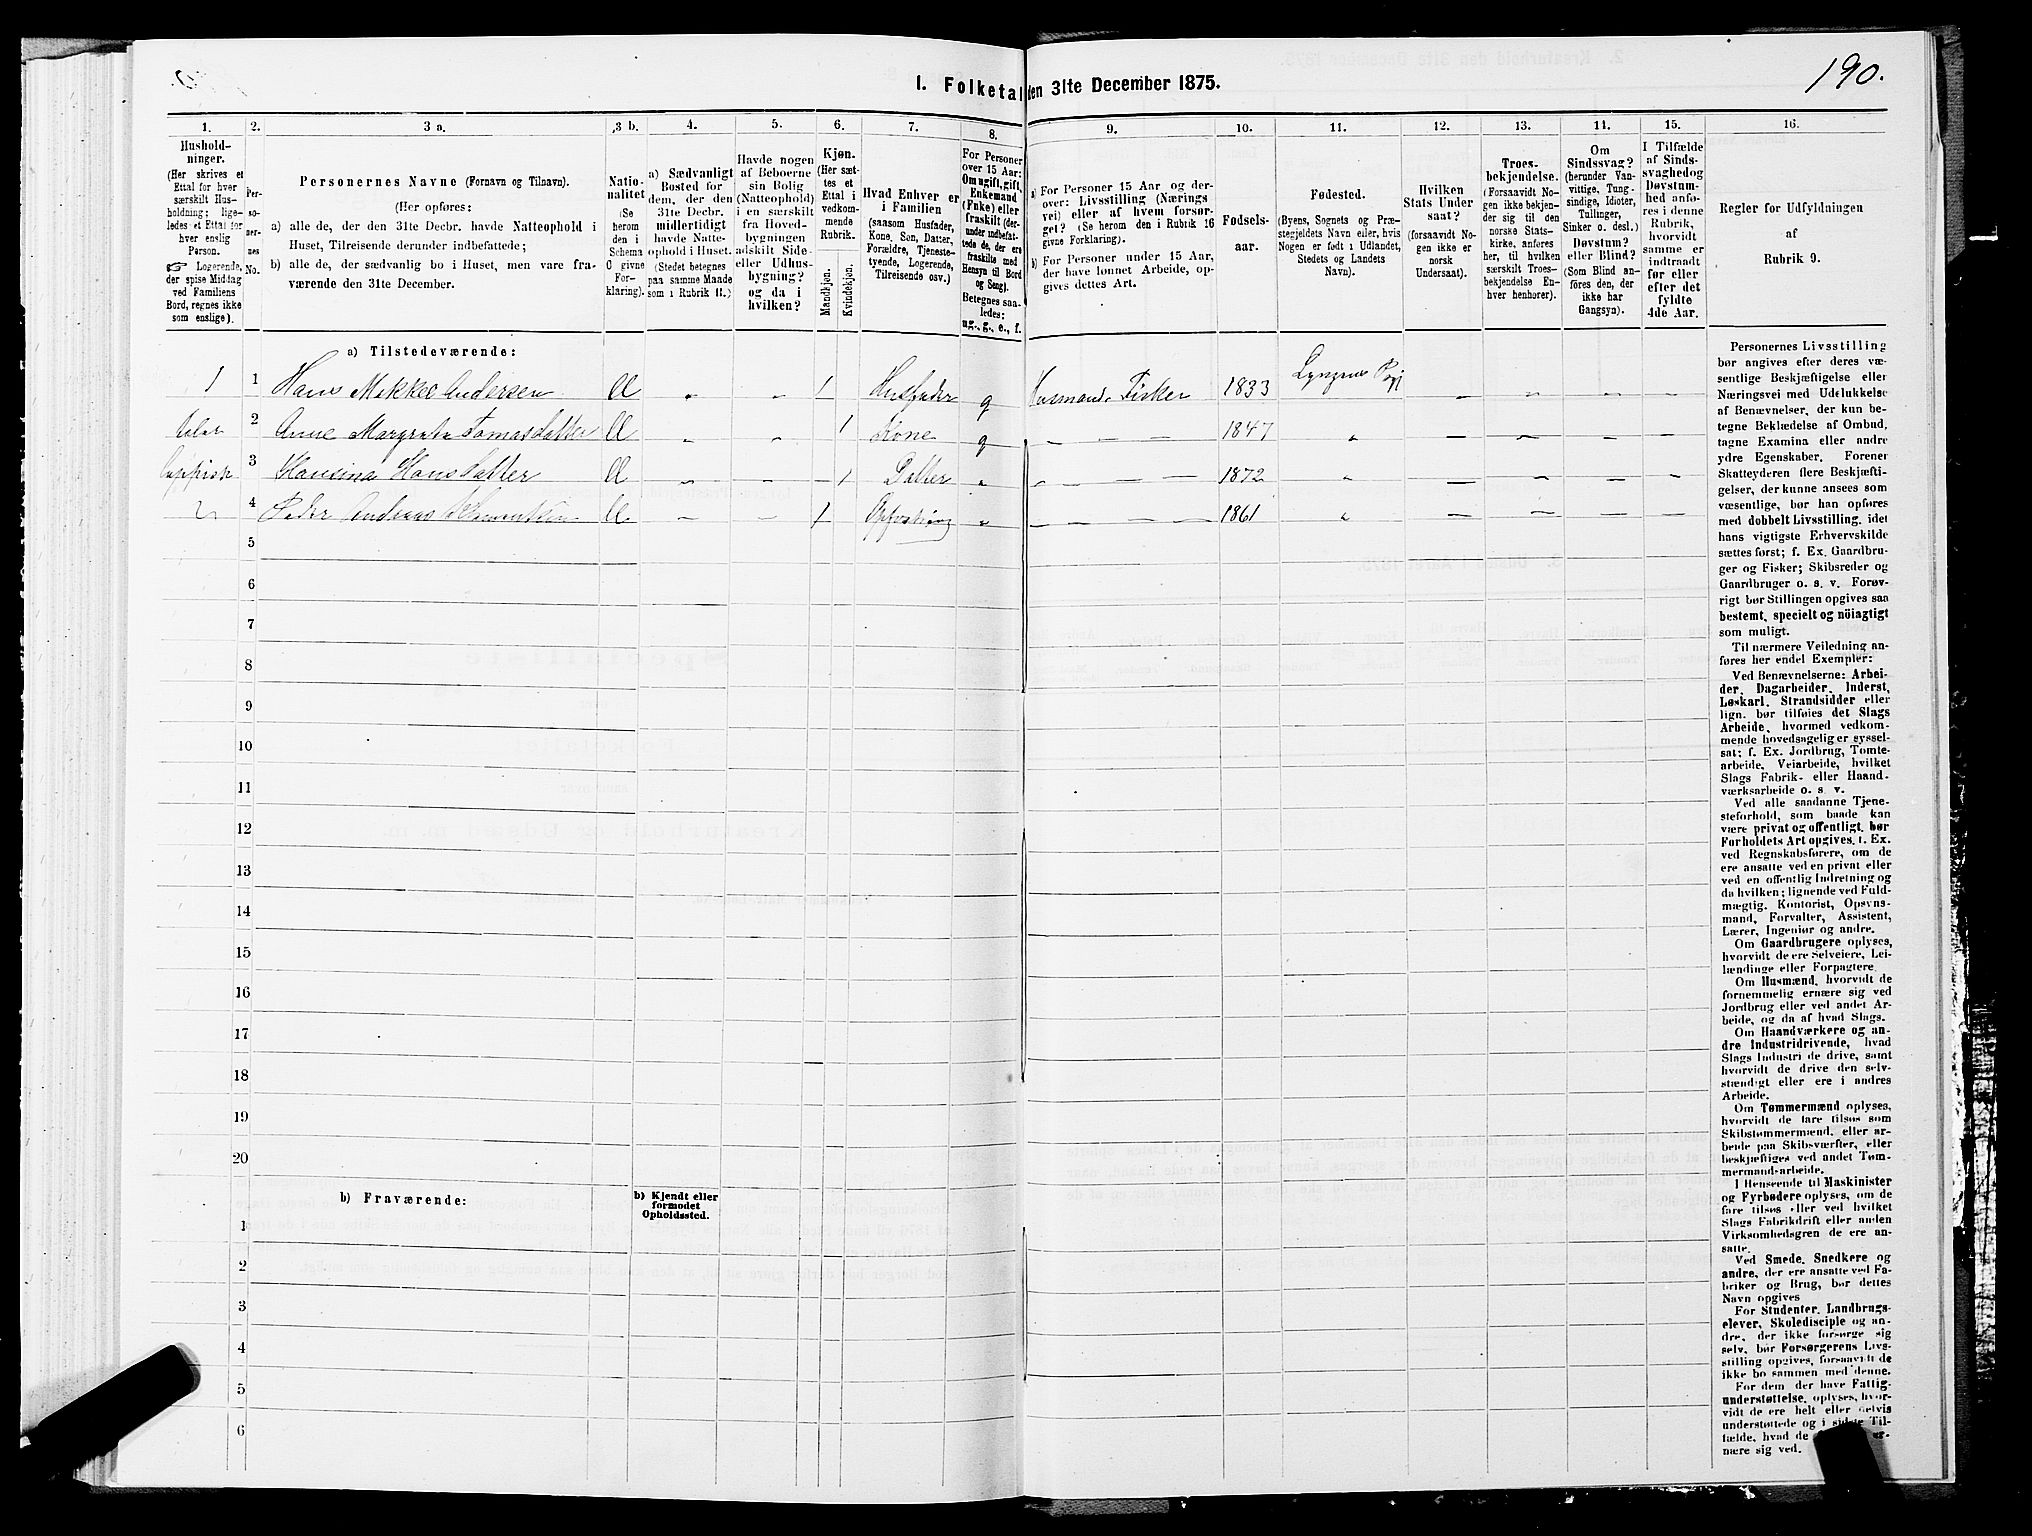 190.
1. Folketal den 31te December 1875.
1. 2. 3 a. 3 b. 4. 5. 6. 7. 8. 9. 10. 11. 12. 13. 14. 15. 16.
Hushold-
ninger.
(Her skrives et
Ettal for hver
særskilt Hus-
holdning; lige-
ledes et Ettal for
hver enslig
Person.
☞ Logerende,
der spise Middag
ved Familiens
Bord, regnes ikke
som enslige).
Per-
so-
ner-
nes
No.
Personernes Navne (Fornavn og Tilnavn).
(Her opføres:
a) alle de, der den 31te Decbr. havde Natteophold i
Huset, Tilreisende derunder indbefattede;
b) alle de, der sædvanlig bo i Huset, men vare fra-
værende den 31te December.
Natio-
nalitet
(Se
herom
den i
Schema
O givne
For-
klaring).
a) Sædvanligt
Bosted for
dem, der den
31te Decbr.
midlertidigt
havde Natte-
ophold i Huset.
(Stedet betegnes
paa samme Maade
som i Rubrik 11.)
Havde nogen
af Beboerne
sin Bolig
(Natteophold)
i en særskilt
fra Hoved-
bygningen
adskilt Side-
eller Udhus-
bygning?
og da i
hvilken?
Kjøn.
(Her sæt-
tes et
Ettal i
vedkom-
mende
Rubrik.
Mandkjøn.
Kvindekjøn.
Hvad Enhver er
i Familien
(saasom Husfader,
Kone, Søn, Datter,
Forældre, Tjeneste-
tyende, Logerende,
Tilreisende osv.)
For Personer
over 15 Aar:
Om ugift, gift,
Enkemand
(Enke) eller
fraskilt (der-
under indbefat-
tede de, der ere
fraskilte med
Hensyn til Bord
og Seng).
Betegnes saa-
ledes:
ug., g., e., f.
a) For Personer 15 Aar og der-
over: Livsstilling (Nærings
vei) eller af hvem forsør-
get? (Se herom den i Rubrik 16
givne Forklaring).
b) For Personer under 15 Aar,
der have lønnet Arbeide, op-
gives dettes Art.
Fødsels-
aar.
Fødested.
(Byens, Sognets og Præ-
stegjeldets Navn eller, hvis
Nogen er født i Udlandet,
Stedets og Landets
Navn).
Hvilken
Stats Under
saat?
(forsaavidt No-
gen ikke er
norsk
Undersaat).
Troes-
bekjendelse.
(Forsaavidt No-
gen ikke bekjen-
der sig til den
norske Stats-
kirke, anføres
her, til hvilken
særskilt Troes-
bekjendelse En-
hver henhører).
Om
Sindssvag?
(herunder Van-
vittige, Tung-
sindige, Idioter,
Tullinger,
Sinker o. desl.)
Døvstum?
eller Blind?
(Som Blind an-
føres den, der
ikke har
Gangsyn).
I Tilfælde
af Sinds-
svaghed og
Døvstum-
hed anfø-
res i denne
Rubrik,
hvorvidt
samme er
indtraadt
før eller
efter det
fyldte
4de Aar.
Regler for Udfyldningen
af
Rubrik 9.
a) Tilstedeværende:
1 1 Hans Mikkel Andersen Husfader g Husmand Fisker 1833 Lyngens
2 Anne Kone g 1847
3 Hansina Hansdatter Datter 1872
4 Peder Andreas 1861
5
6
7
8
9
10
11
12
13
14
15
16
17
18
19
20
b) Fraværende:
b) Kjendt eller
formodet
Opholdssted.
1
2
3
4
5
6
Personernes Livsstilling
bør angives efter deres væ-
sentlige Beskjæftigelse eller
Næringsvei med Udelukkelse
af Benævnelser, der kun be-
tegne Beklædelse af Ombud,
tagne Examina eller andre
ydre Egenskaber. Forener
Skatteyderen flere Beskjæfti-
gelser, der kunne ansees som
væsentlige, bør han opføres
med dobbelt Livsstilling, idet
hans vigtigste Erhvervskilde
sættes først; f. Ex. Gaardbru-
ger og Fisker; Skibsreder og
Gaardbruger o. s. v. Forøv-
rigt bør Stillingen opgives saa
bestemt, specielt og nöiagtigt
som muligt.
Til nærmere Veiledning an-
føres her endel Exempler:
Ved Benævnelserne: Arbei-
der, Dagarbeider, Inderst,
Løskarl, Strandsidder eller
lign. bør tilføies det Slags
Arbeide, hvormed vedkom-
mende hovedsagelig er syssel-
sat; f. Ex. Jordbrug, Tomte-
arbeide, Veiarbeide, hvilket
Slags Fabrik- eller Haand-
værksarbeide o. s. v.
Ved alle saadanne Tjene-
steforhold, som baade kan
være privat og offentligt, bør
Forholdets Art opgives, f. Ex.
ved Regnskabsførere, om de
ere ansatte ved en privat eller
ved en offentlig Indretning og
da hvilken; lignende ved Fuld-
mægtig, Kontorist, Opsyns-
mand, Forvalter, Assistent,
Lærer, Ingeniør og andre.
Om Gaardbrugere oplyses,
hvorvidt de ere Selveiere, Lei-
lændinge eller Forpagtere.
Om Husmænd, hvorvidt de
fornemmelig ernære sig ved
Jordbrug eller ved andet Ar-
beide, og da af hvad Slags.
Om Haandværkere og an-
dre Industridrivende, hvad
Slags Industri de drive, samt
hvorvidt de drive den selv-
stændigt eller ere i andres
Arbeide.
Om Tømmermænd oplyses,
hvorvidt de fare tilsøs som
Skibstømmermænd, eller ar-
beide paa Skibsværfter, eller
beskjæftiges ved andet Tøm-
mermand-arbeide.
I Henseende til Maskinister
og Fyrbødere oplyses, om de
fare tilsøs eller ved hvilket
Slags Fabrikdrift eller anden
Virksomhedsgren de ere an-
satte.
Ved Smede, Snedkere og
andre, der ere ansatte ved Fa-
briker og Brug, bør dettes
Navn opgives
For Studenter, Landbrugs-
elever, Skoledisciple og an-
dre, der ikke forsørge sig
selv, bør Forsørgerens Livs-
stilling opgives, forsaavidt de
ikke bo sammen med denne.
For dem der have Fattig-
understøttelse, oplyses, hvor-
vidt de ere helt eller delvis
understøttede og i sidste Til-
fælde, hvad de
nære sig ved.